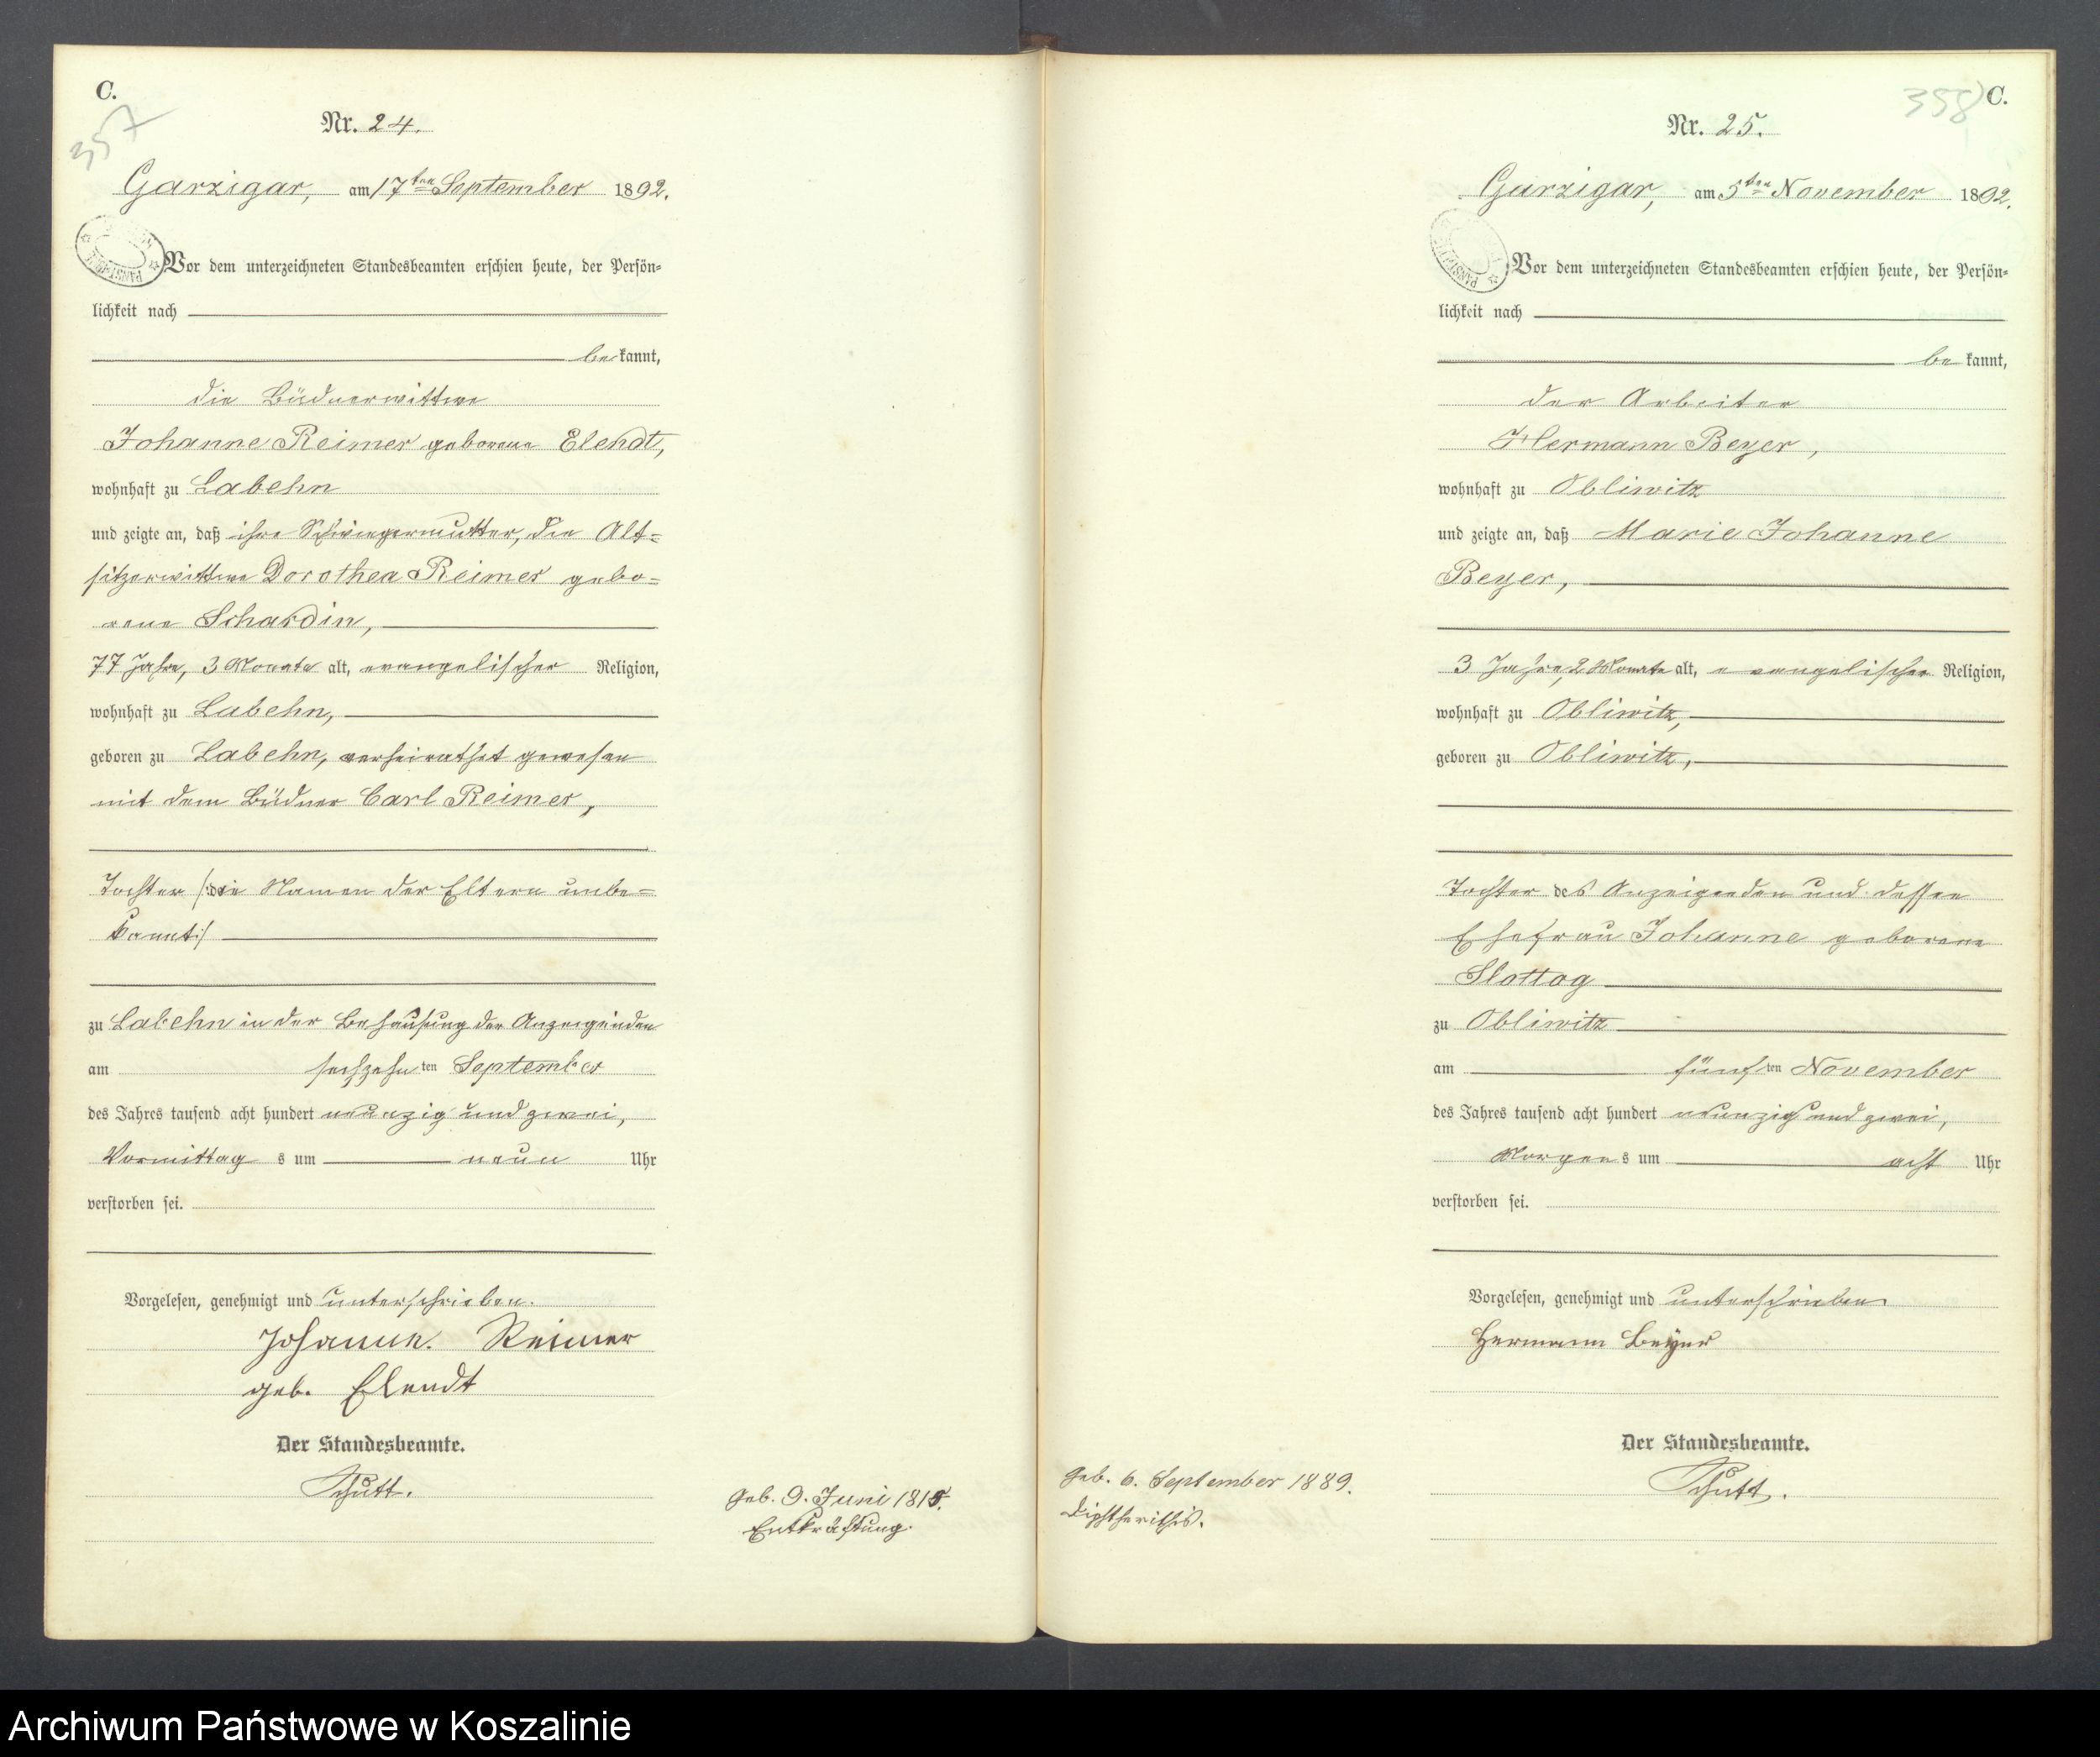 C.
357
Nr. 24.
Garzigar, am 17ten September 1892.
Vor dem unterzeichneten Standesbeamten erschien heute, der Persön-
lichkeit nach
be kannt,
die Büdnerwittwe
Johanne Reimer geborene Elendt,
wohnhaft zu Labehn
und zeigte an, daß ihre Schwiegermutter, die Alt-
sitzerwittwe Dorothea Reimer gebo-
rene Schardin,
77 Jahre, 3 Monate alt, evangelischer Religion,
wohnhaft zu Labehn,
geboren zu Labehn, verheirathet gewesen
mit dem Büdner Carl Reimer,
Tochter /: die Namen der Eltern unbe-
kannt :/
zu Labehn in der Behausung der Anzeigenden
am sechzehnten September
des Jahres tausend acht hundert neunzig und zwei,
Vormittags um neun Uhr
verstorben sei.
Vorgelesen, genehmigt und unterschrieben.
Johanne. Reimer
geb. Elendt
Der Standesbeamte.
Schutt.
geb. 9. Juni 1815.
Entkräftung.
358
C.
Nr. 25.
Garzigar, am 5ten November 1892.
Vor dem unterzeichneten Standesbeamten erschien heute, der Persön-
lichkeit nach
be kannt,
der Arbeiter
Hermann Beyer,
wohnhaft zu Obliwitz
und zeigte an, daß Marie Johanne
Beyer,
3 Jahre, 2 Monate alt, evangelischer Religion,
wohnhaft zu Obliwitz,
geboren zu Obliwitz,
Tochter des Anzeigenden und dessen
Ehefrau Johanne geborene
Slottog
zu Obliwitz
am fünften November
des Jahres tausend acht hundert neunzig und zwei,
Morgens um acht Uhr
verstorben sei.
Vorgelesen, genehmigt und unterschrieben
Hermann Beyer
Der Standesbeamte.
Schutt.
geb. 6. September 1889.
Diphtheritis.
Archiwum Państwowe w Koszalinie